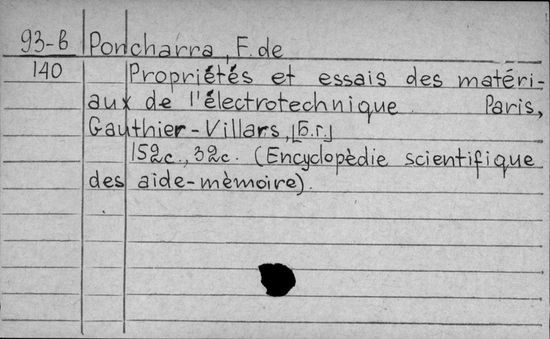 93-В Poncharra, F. de
140 Propriétés et essais des matéri-
aux de l'électrotechnique. Paris,
Gauthier-Villars, [б.г.]
152с., 32с. (Encyclopèdie scientifique
des aide-mèmoire).